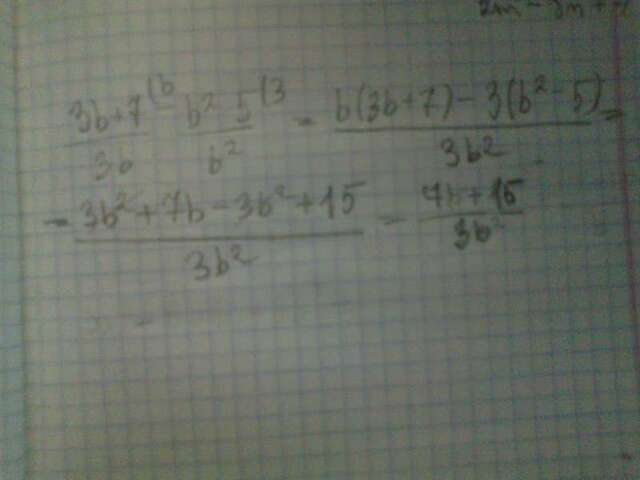 (3b+7)/3b (b - (b² - 5)/b² (3 = (b(3b+7) - 3(b² - 5))/3b² =
= (3b² + 7b - 3b² + 15)/3b² = (7b + 15)/3b²